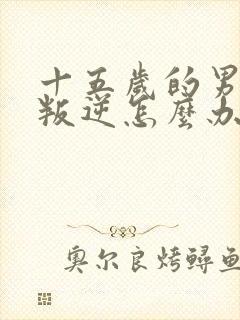 十五歲的男
叛逆怎麼办
奧尔良烤鲟鱼